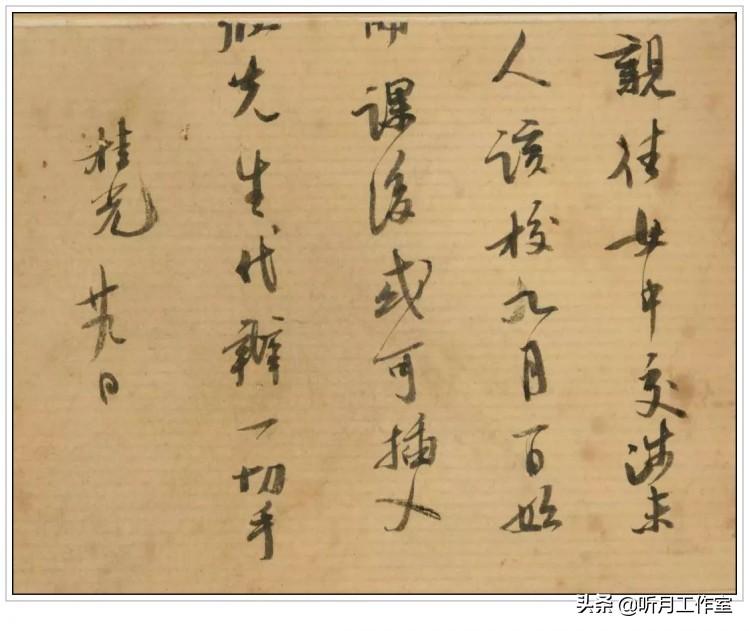 親往女中交涉未
人該校九月一日始
課後或可插入
先生代辦一切手
桂光 廿九日
头条 @听月工作室